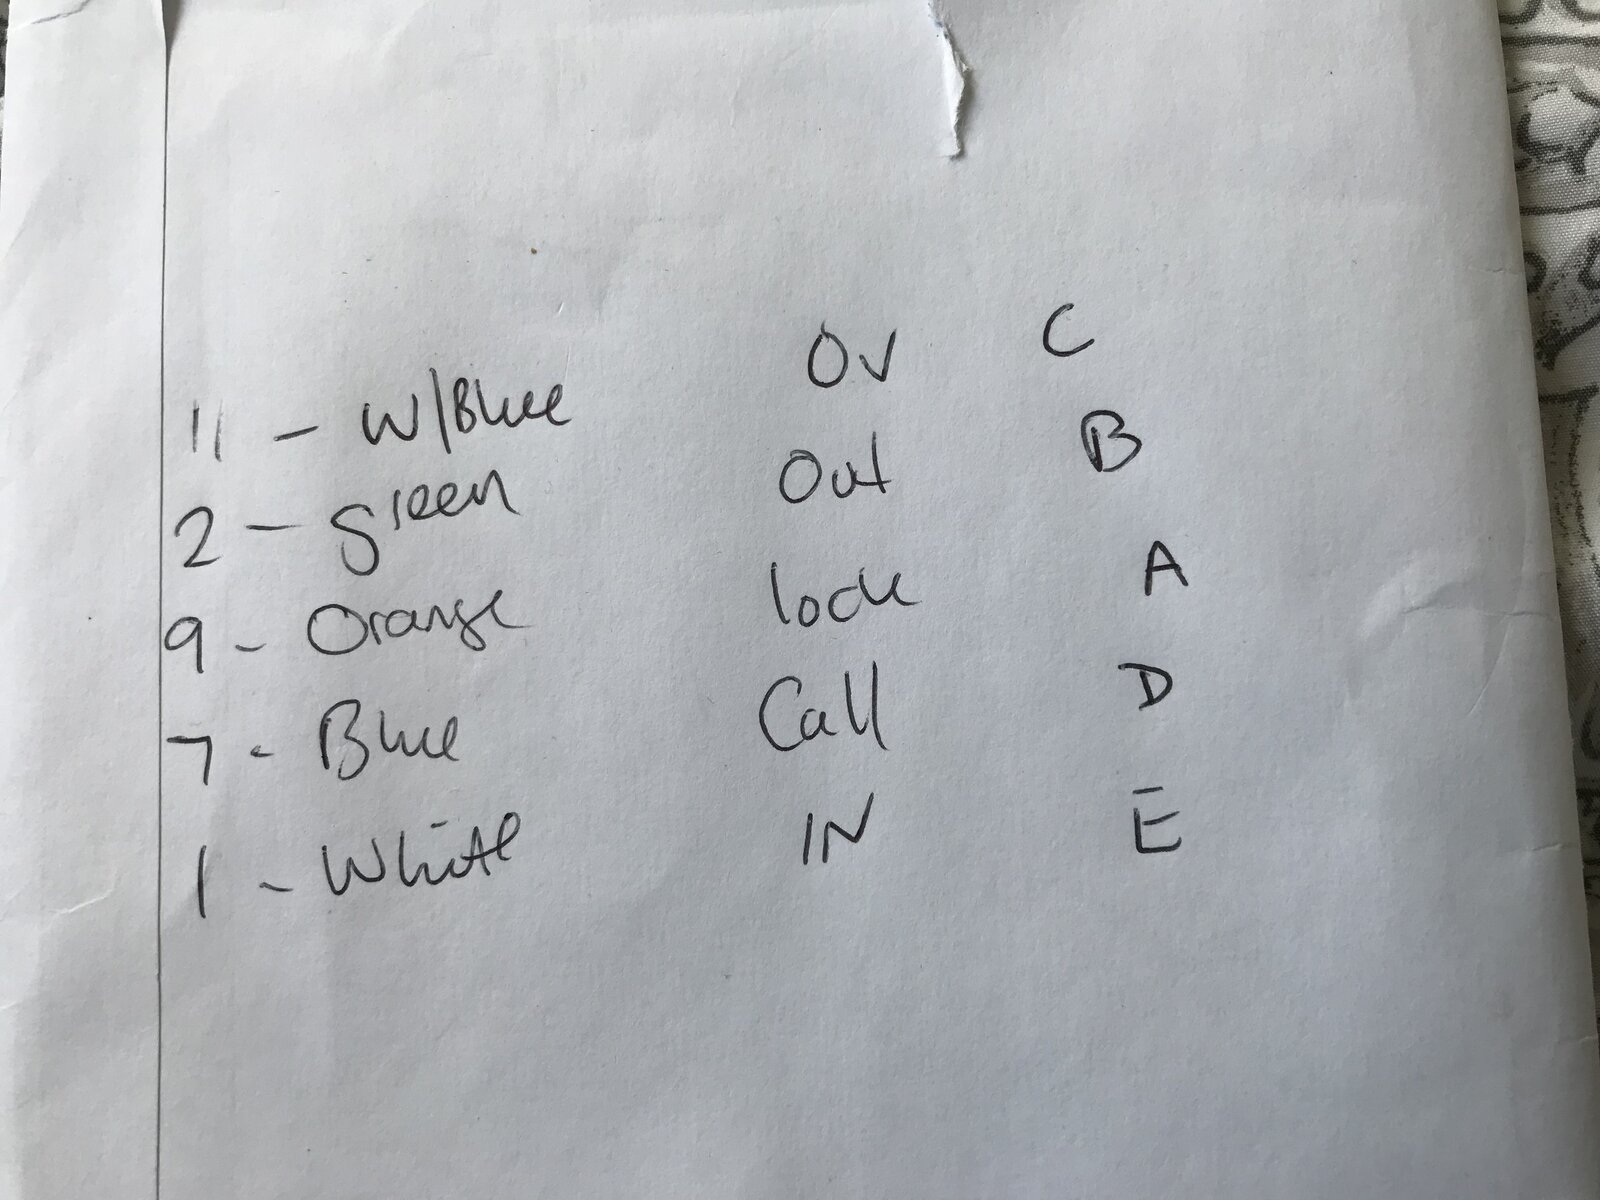 11 - W/Blue OV C
2 - green Out B
9 - Orange lock A
7 - Blue Call D
1 - White IN E